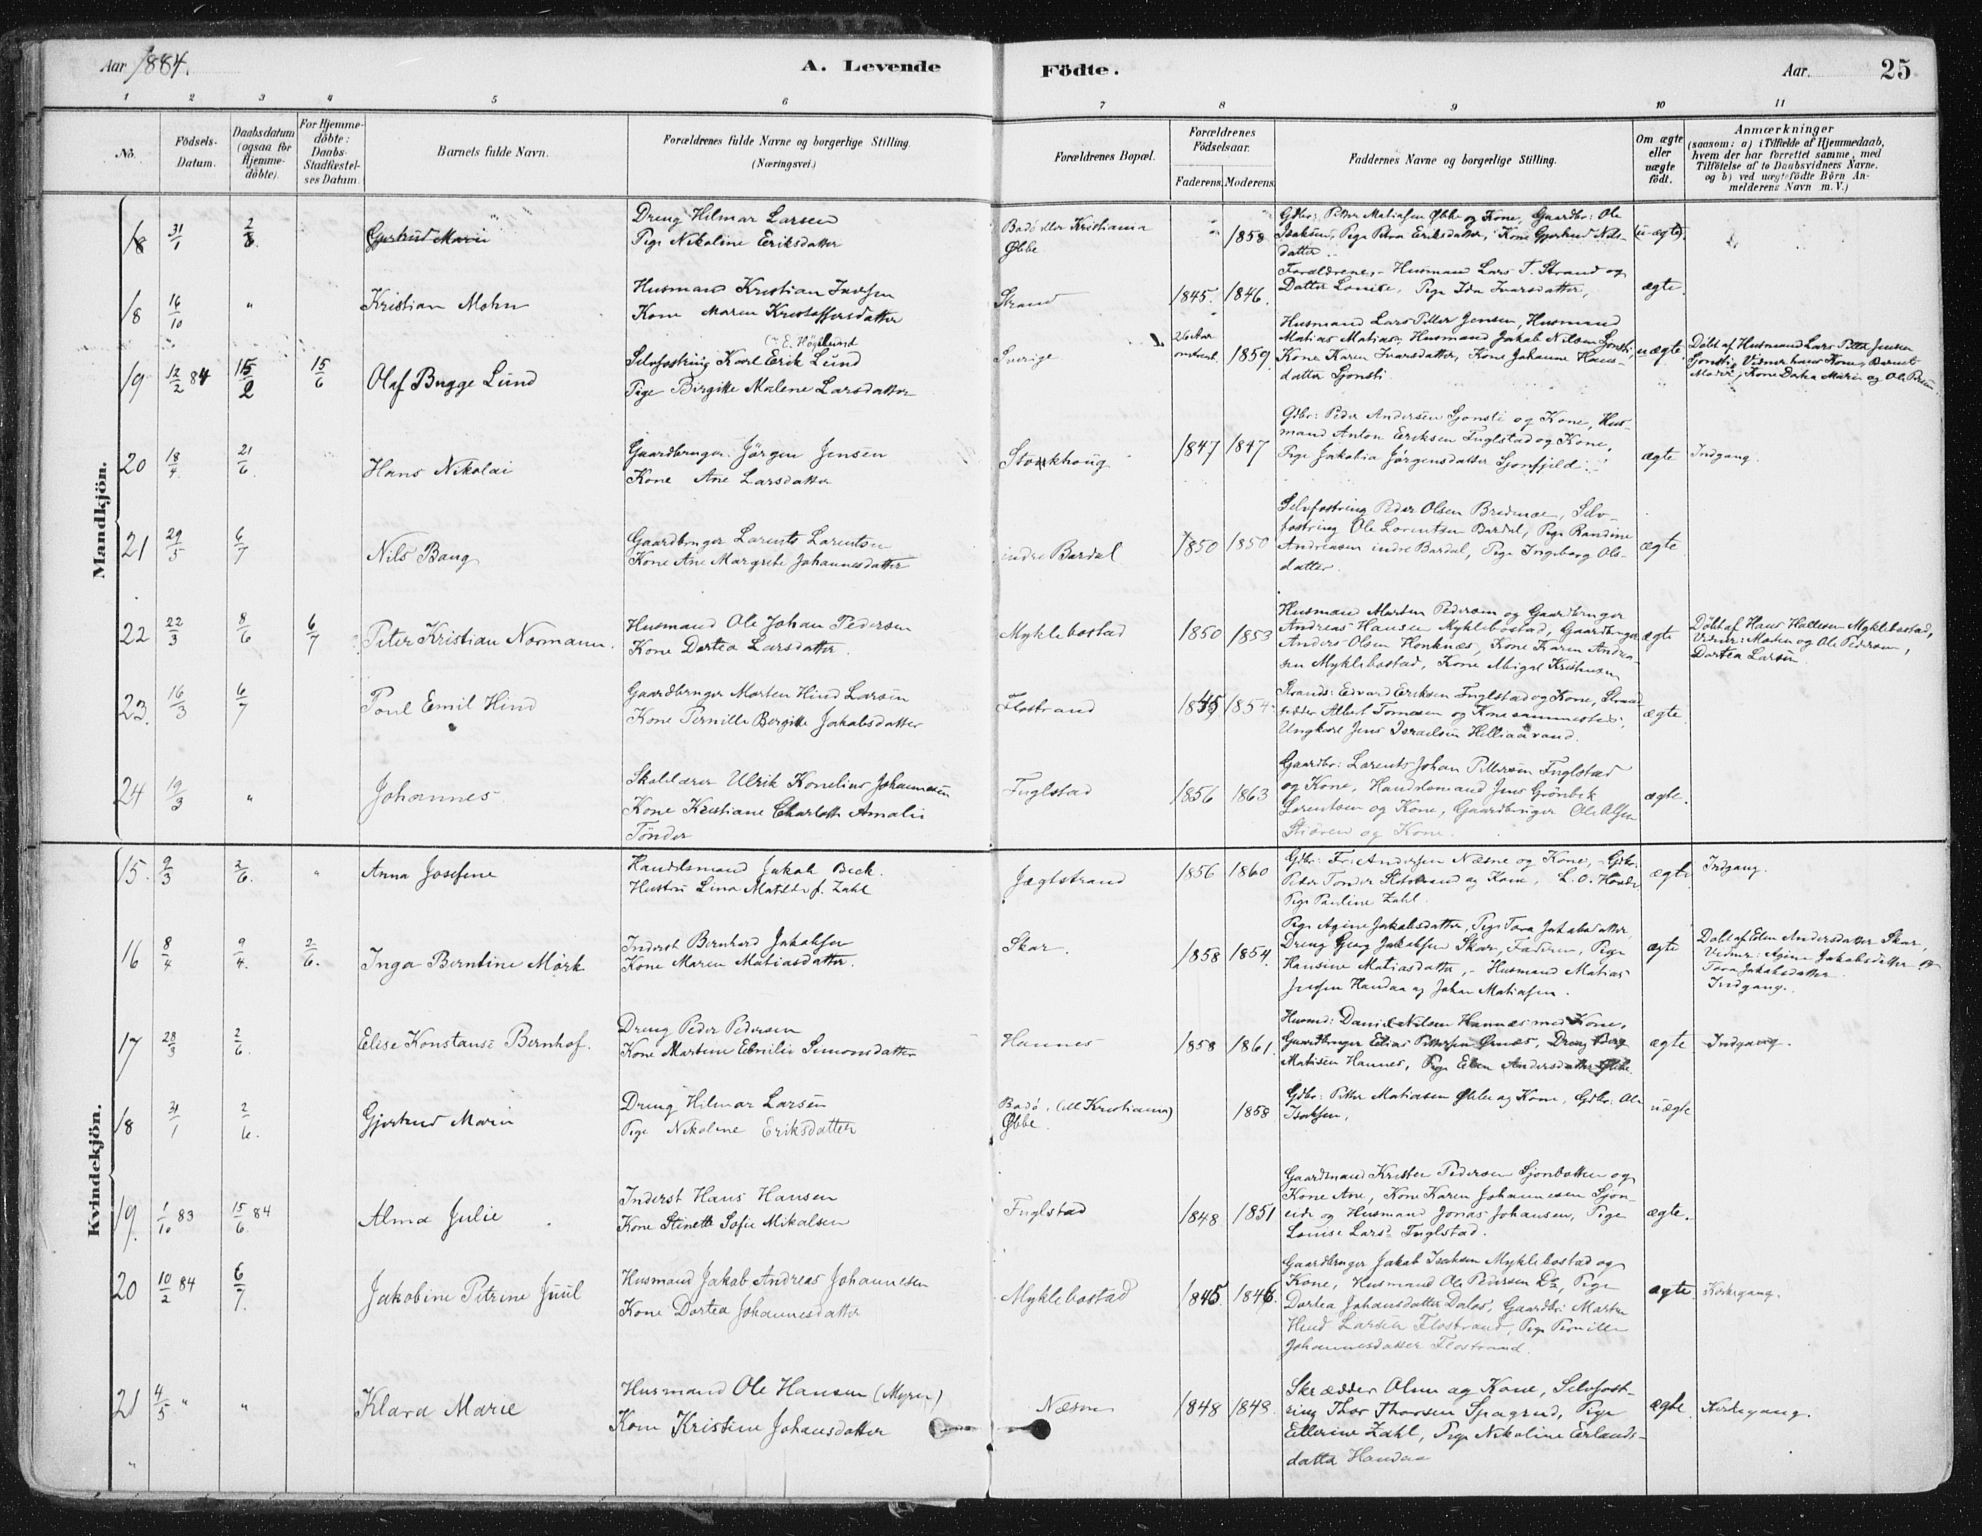 Aar 1884. A. Levende Födte. Aar. 25
1 2 3 4 5 6 7 8 9 10 11
No. Födsels-Datum. Daabsdatum (ogsaa for Hjemme-döbte). For Hjemme-döbte: Daabs-Stadfæstel-ses Datum. Barnets fulde Navn. Forældrenes fulde Navne og borgerlige Stilling. (Næringsvei.) Forældrenes Bopæl. Forældrenes Födselsaar. Faderens. Moderens. Faddernes Navne og borgerlige Stilling. Om ægte eller uægte födt. Anmærkninger (saasom: a) i Tilfælde af Hjemmedaab, hvem der har forrettet samme, med Tilföielse af to Daabsvidners Navne. og b) ved uægtefödte Börn An-melderens Navn m. V.)
Mandkjön.
18 31/1 2/6. Gjertrud Marie
Dreng Hilmar Larsen
Pige Nikoline Eriksdatter
Bodö eller Kristiania
Øbbe
" 1858
Gdbr: Petter Matiasen Øbbe og Kone, Gaardbr: Ole
Isaksen, Pige Petra Eriksdatter, Kone Gjertrud Nils-
datter
(uægte).
18 16/10 " Kristian Mohn
Husmand Kristian
Kone Maren Kristoffersdatter
Strand
1845. 1846.
Forældrene, Husmand Lars T. Strand og
Datter Louise, Pige Ida Ivarsdatter,
ægte.
19 12/2 84 15/2 15/6 Olaf Bugge Lund
Selvfostring Karl Erik Lund
Pige Birgitte Malene Larsdatter
Sverige
26 Aar
omtrent 1859.
Husmand Lars Petter Jensen, Husmand
Matias Matias, Husmand Jakob Nilsen Sjonsti,
Kone Karen Ivarsdatter, Kone Johanne Hans-
datter Sjonsti
uægte
Döbt af Husmand Lars Petter Jensen
Sjonsti, Vidner hans Kone, Barnets
Moder, Kone
20 18/4. 21/6. Hans Nikolai
Gaardbruger Jörgen Jensen
Kone Ane Larsdatter
Stokkhoug
1847 1847
Gdbr: Peder Andersen Sjonsti og Kone, Hus-
mand Anton Eriksen Fuglstad og Kone,
Pige Jakobia Jörgensdatter Sjonfjeld.
ægte Indgang.
21 29/5 6/7 Nils Bang
Gaardbruger Lorents Lorentsen
Kone Ane Margrete Johannesdatter
indre Bardal
1850 1850
Selvfostring Peder Olsen Bredenæs, Selv-
fostring Ole Lorentsen Bardal, Pige Randine
Andreasen indre Bardal, Pige Ingeborg Ols-
datter.
ægte.
22 22/3 8/6 6/7 Peter Kristian Normann.
Husmand Ole Johan Pedersen
Kone Dortea Larsdatter.
Myklebostad
1850 1853
Husmand Morten Pedersen og Gaardbruger
Andreas Hansen Myklebostad, Gaardbruger
Anders Olsen Henknæs, Kone Karen Andrea-
sen Myklebostad, Kone Abigal
ægte
Döbt af Hans Myklebostad,
Vidner: Moren og Ole Pedersen,
Dortea Larsen.
23. 16/3 6/7 Poul Emil Hind
Gaardbruger Morten Hind Larsen
Kone Pernille Bergitte Jakobsdatter
Flostrand
1845 1854.
Strands: Edvard Eriksen Fuglstad og Kone, Strand-
sidder Albert Tomasen og Kone sammesteds,
Ungkarl Jens Israelsen Helliaavand.
ægte.
24 19/3 " Johannes
Skolelærer Ulrik Konelius Johannesen
Kone Kristiane Charlotte Amalie
Tönder
Fuglstad
1856 1863
Gaardbr: Lorents Johan Pettersen Fuglstad
og Kone, Handelsmand Jens Grönbek
Lorentsen og Kone, Gaardbruger Ole Olsen
og Kone.
ægte.
Kvindekjön.
15. 9/3 2/6. " Anna Josefine
Handelsmand Jakob Beck.
Hustru Lina Matilde f. Zahl
Jægtstrand
1856 1860
Gdbr: Fr: Andersen Næsne og Kone, Gdbr:
Peter Tönder og Kone, L. O.
Pige Pauline Zahl.
ægte Indgang.
16 8/4 9/4. 2/6. Inga Berntine Mörk
Inderst Bernhard Jakobsen
Kone Maren Matiasdatter.
Skar.
1858 1854.
Pige Agine Jakobsdatter, Pige Tora Jakobsdatter,
Dreng Georg Jakobsen Skar, Faderen, Pige
Hansine Matiasdatter, Husmand Matias
Jensen Handaa og Johan Matiasen.
ægte
Döbt af Elen Andersdatter Skar,
Vidner: Agine Jakobsdatter og
Tora Jakobsdatter.
Indgang.
17 28/3 2/6. Elise Konstanse Bernhof.
Dreng Peder Pedersen
Kone Martine Emilie Simonsdatter
Hannes
1858 1861.
Husmd: Daniel Nilsen Hannæs med Kone,
Gaardbruger Elias Pettersen, Dreng
Matisen Hannes, Pige Elen Andersdatter Øbbe.
ægte Indgang.
18 31/1 2/6. Gjertrud Marie
Dreng Hilmar Larsen
Pige Nikoline Eriksdatter
Bodö, (ell Kristiania)
Øbbe.
1858
Gdbr: Petter Matiasen Øbbe og Kone, Gdbr: Ole
Isaksen,
uægte
19. 1/10 83 15/6. 84 Alma Julie
Inderst Hans Hansen
Kone Stinette Sofie Mikalsen
Fuglstad
1848 1851
Gaardmand Kristen Pedersen Sjonbotten og
Kone Ane, Kone Karen Johannesen Sjon-
eide og Husmand Jonas Johansen, Pige
Louise Lars: Fuglstad.
ægte.
20 10/2 84 6/7. Jakobine Petrine Juul
Husmand Jakob Andreas Johannesen
Kone Dortea Johannesdatter
Myklebostad
1845. 1846.
Gaardbruger Jakob Isaksen Myklebostad og
Kone, Husmand Ole Pedersen Do, Pige
Dortea Johansdatter Dalos, Gaardbr: Morten
Hind Larsen Flostrand, Pige Pernille
Johannesdatter Flostrand.
ægte. Kirkegang.
21 4/5 " " Klara Marie
Husmand Ole Hansen (Myren)
Kone Kristine Johansdatter
Næsne
1848 1848.
Skrædder Olsen og Kone, Selvfost-
ring Thor Thorsen, Pige
Ellerine Zahl, Pige Nikoline Erlands-
datter Handaa
ægte. Kirkegang.